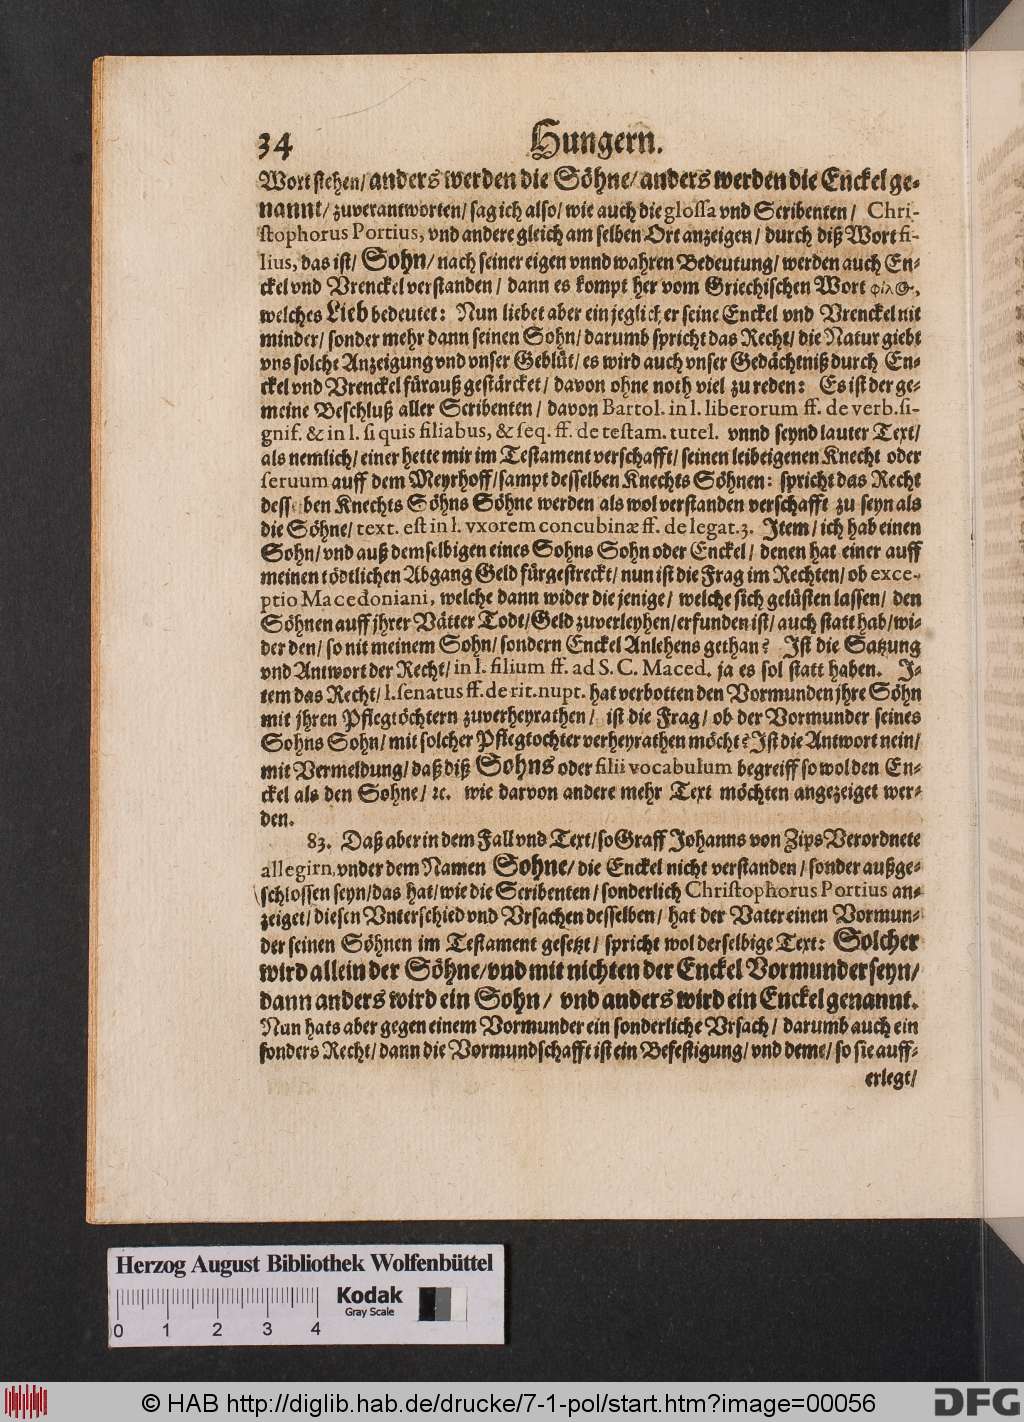 34 Hungern.
Wort stehen/ anders werden die Söhne/ anders werden die Enckel ge-
nannt/ zuverantworten/ sag ich also/ wie auch die glossa vnd Scribenten/ Chri-
stophorus Portius, vnd andere gleich am selben Ort anzeigen/ durch diß Wort fi-
lius, das ist/ Sohn/ nach seiner eigen vnnd wahren Bedeutung/ werden auch En-
ckel vnd Vrenckel verstanden/ dann es kompt her vom Griechischen Wort φίλος,
welches Lieb bedeutet: Nun liebet aber ein jeglicher seine Enckel vnd Vrenckel nit
minder/ sonder mehr dann seinen Sohn/ darumb spricht das Recht/ die Natur giebt
vns solche Anzeigung vnd vnser Geblüt/ es wird auch vnser Gedächtniß durch En-
ckel vnd Vrenckel fürauß gestärcket/ davon ohne noth viel zu reden: Es ist der ge-
meine Beschluß aller Scribenten/ davon Bartol. in l. liberorum ff. de verb. si-
gnif. & in l. si quis filiabus, & seq. ff. de testam. tutel. vnnd seynd lauter Text/
als nemlich/ einer hette mir im Testament verschafft/ seinen leibeigenen Knecht oder
seruum auff dem Meyrhoff/ sampt desselben Knechts Söhnen: spricht das Recht
dess ben Knechts Söhns Söhne werden als wol verstanden verschafft zu seyn als
die Söhne/ text. est in l. vxorem concubinæ ff. de legat. 3. Item/ ich hab einen
Sohn/ vnd auß demselbigen eines Sohns Sohn oder Enckel/ denen hat einer auff
meinen tödtlichen Abgang Geld fürgestreckt/ nun ist die Frag im Rechten/ ob exce-
ptio Macedoniani, welche dann wider die jenige/ welche sich gelüsten lassen/ den
Söhnen auff jhrer Vätter Todt/ Geld zuverleyhen/ erfunden ist/ auch statt hab/ wi-
der den/ so nit meinem Sohn/ sondern Enckel Anlehens gethan? Ist die Satzung
vnd Antwort der Recht/ in l. filium ff. ad S. C. Maced. ja es sol statt haben. I-
tem das Recht/ l. senatus ff. de rit. nupt. hat verbotten den Vormunden jhre Söhn
mit jhren Pflegtöchtern zuverheyrathen/ ist die Frag/ ob der Vormunder seines
Sohns Sohn/ mit solcher Pflegtochter verheyrathen möcht? Ist die Antwort nein/
mit Vermeldung/ daß diß Sohns oder filii vocabulum begreiff so wol den En-
ckel als den Sohne/ ꝛc. wie darvon andere mehr Text möchten angezeiget wer-
den.
83. Daß aber in dem Fall vnd Text/ so Graff Johanns von Zips Verordnete
allegirn, vnder dem Namen Sohne/ die Enckel nicht verstanden/ sonder außge-
schlossen seyn/ das hat/ wie die Scribenten/ sonderlich Christophorus Portius an-
zeiget/ diesen Vnterschied vnd Vrsachen desselben/ hat der Vater einen Vormun-
der seinen Söhnen im Testament gesetzt/ spricht wol derselbige Text: Solcher
wird allein der Söhne/ vnd mit nichten der Enckel Vormunder seyn/
dann anders wird ein Sohn/ vnd anders wird ein Enckel genannt.
Nun hats aber gegen einem Vormunder ein sonderliche Vrsach/ darumb auch ein
sonders Recht/ dann die Vormundschafft ist ein Befestigung/ vnd deme/ so sie auff-
erlegt/
Herzog August Bibliothek Wolfenbüttel
Kodak
Gray Scale
0 1 2 3 4
© HAB http://diglib.hab.de/drucke/7-1-pol/start.htm?image=00056
DFG